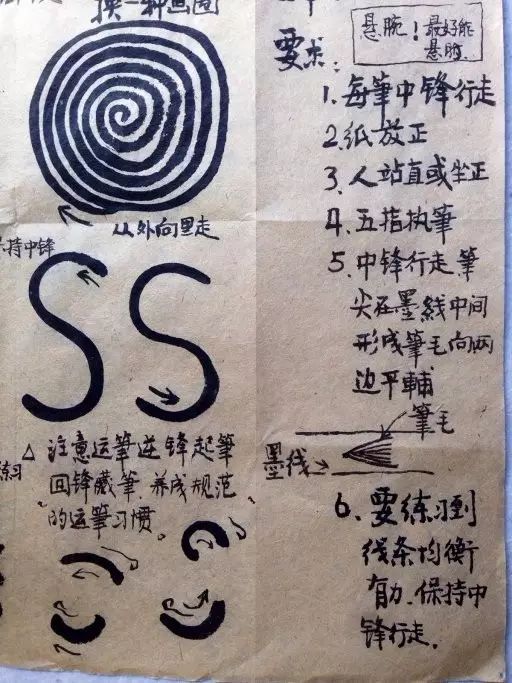 换一种画圈
从外向里走
持中锋
△ 注意运筆逆锋起筆
回锋藏筆.养成规范
的运筆习惯。
练习
悬腕！最好能
悬肘.
要求：
1. 每筆中锋行走
2. 纸放正
3. 人站直或坐正
4. 五指执筆
5. 中锋行走.筆
尖在墨線中间
形成筆毛向两
边平輔
筆毛
墨线
6. 要练习到
线条均衡
有力.保持中
锋行走.